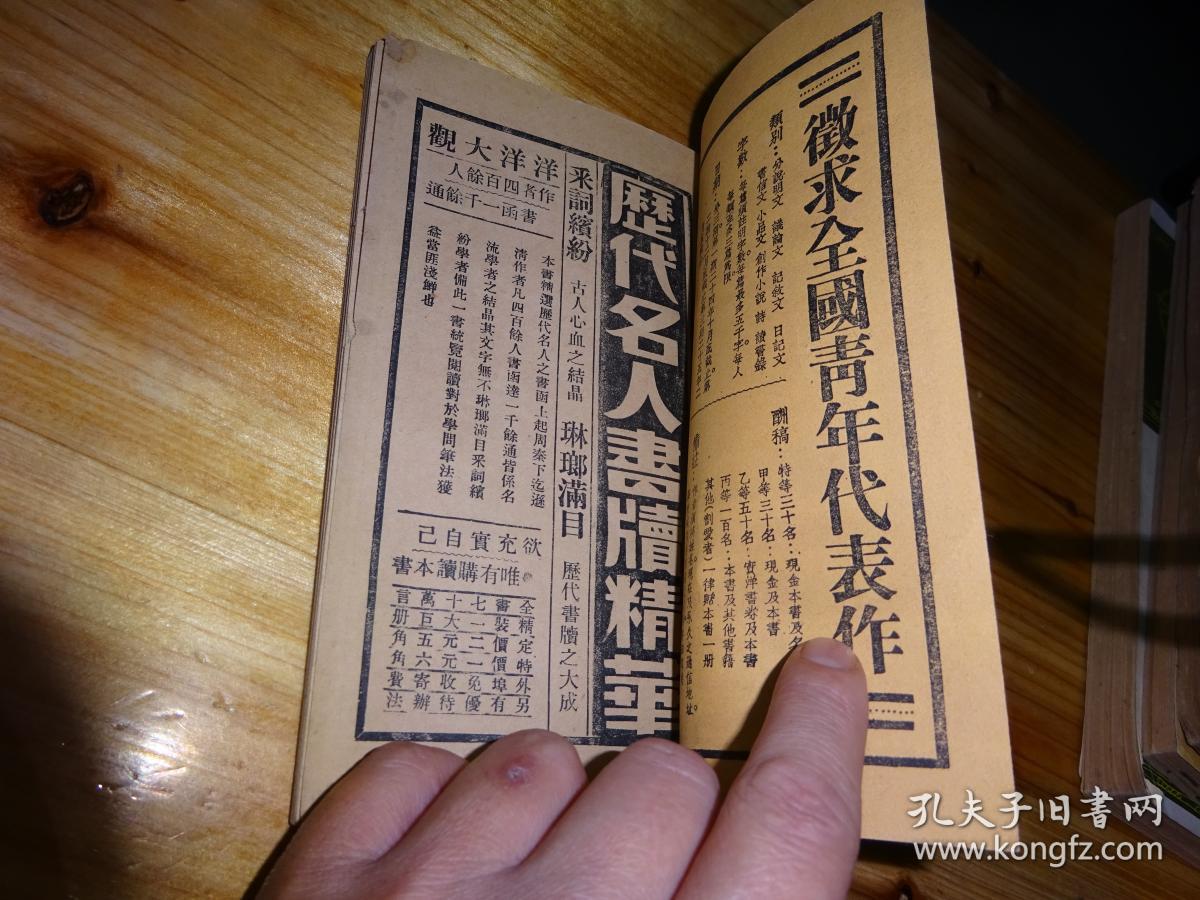 徵求全國靑年代表作
類別：分說明文 議論文 記敘文 日記文
書信文 小品文 創作小說 詩 讀書錄
字數：每篇須註明字數每篇最多五千字每人
每類至多三篇爲限。
酬稿：特等三十名：現金本書及名
甲等三十名：現金及本書
乙等五十名：實洋書劵及本書
丙等一百名：本書及其他書籍
其他(割愛者)一律贈本書一册
歷代名人書牘精華
釆詞繽紛 古人心血之結晶 琳瑯滿目 歷代書牘之大成
洋洋大觀
作者四百餘人
書函一千餘通
本書精選歷代名人之書函上起周秦下迄遜
淸作者凡四百餘人書函達一千餘通皆係名
流學者之結晶其文字無不琳瑯滿目釆詞繽
紛學者備此一書統覽閱讀對於學問筆法獲
益當匪淺鮮也
欲充實自己
唯有購讀本書
全書七十萬言
精裝一大巨册
定價二元五角
特價一元六角
外埠免收寄費
另有優待辦法
孔夫子旧書网
www.kongfz.com